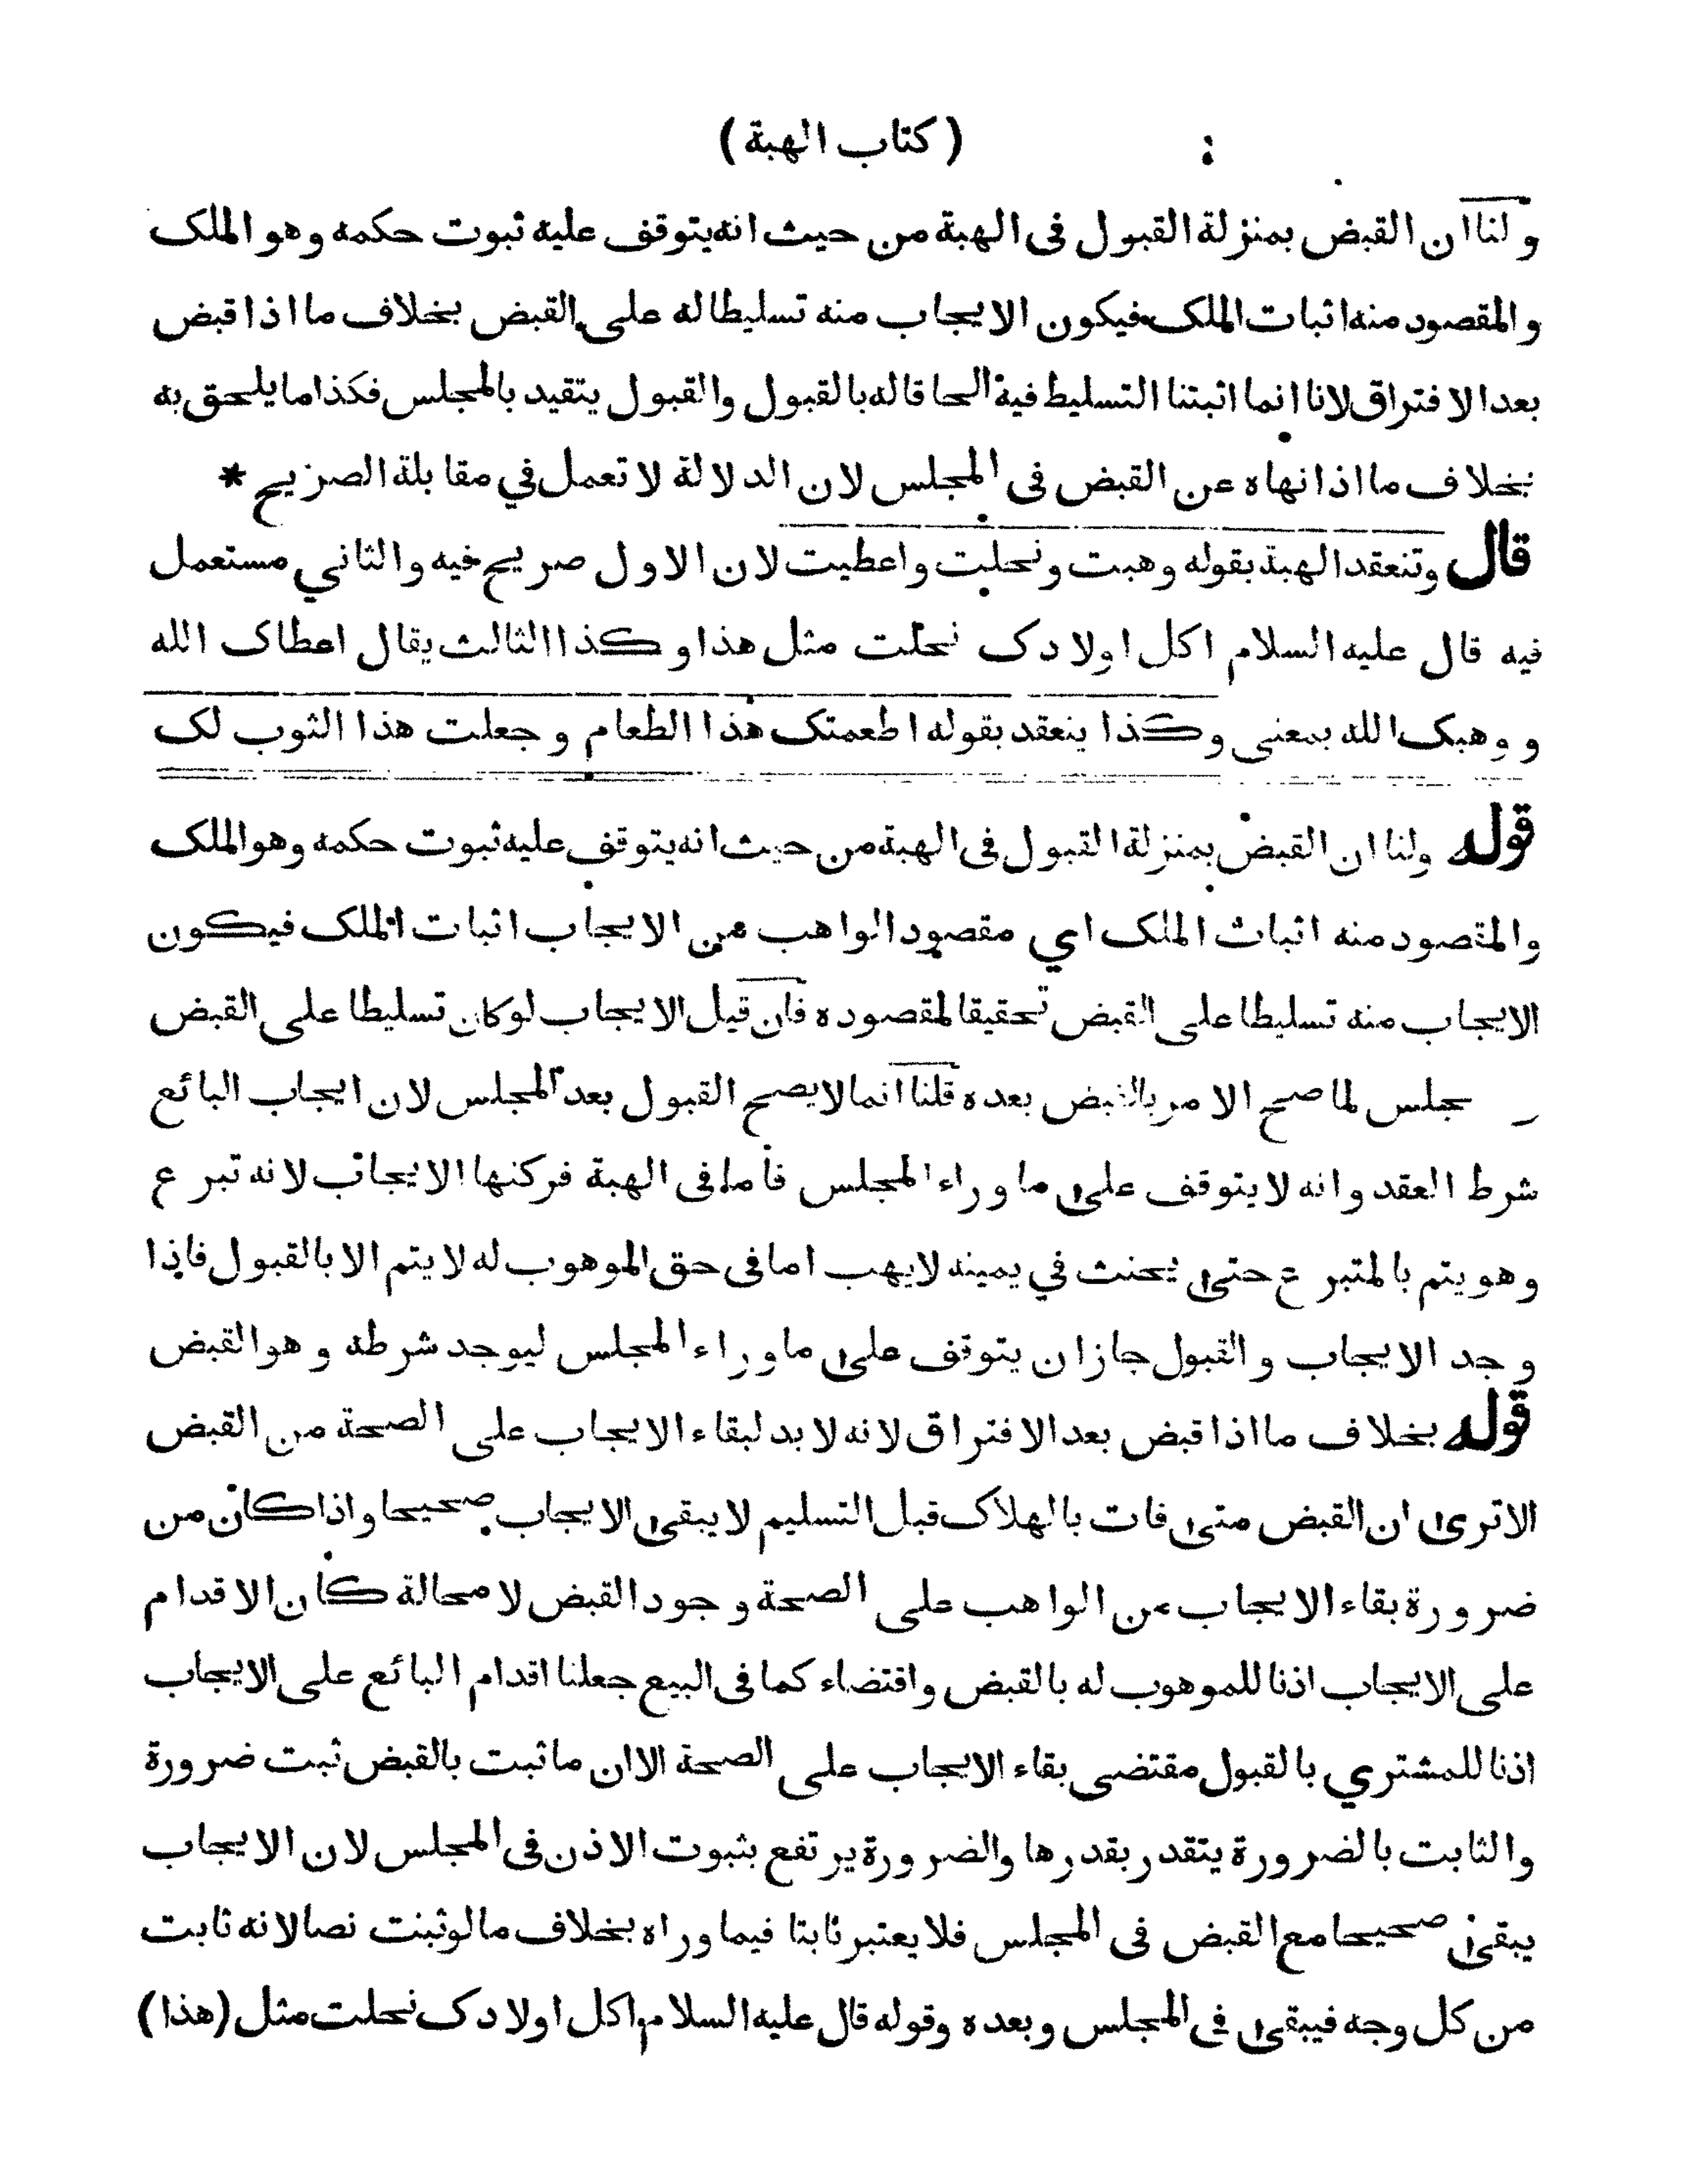 ( كتاب الهبة )
ولنا ان القبض بمنزلة القبول فى الهبة من حيث انه يتوقف عليه ثبوت حكمه وهو الملك
والمقصود منه اثبات الملك فيكون الايجاب منه تسليطا له على القبض بخلاف ما اذا قبض
بعد الافتراق لانا انما اثبتنا التسليط فيه الحاقا له بالقبول والقبول يتقيد بالمجلس فكذا ما يلحق به
بخلاف ما اذا نهاه عن القبض فى المجلس لان الدلالة لا تعمل في مقابلة الصريح *
قال وتنعقد الهبة بقوله وهبت ونحلت واعطيت لان الاول صريح فيه والثاني مستعمل
فيه قال عليه السلام اكل اولادك نحلت مثل هذا وكذا الثالث يقال اعطاك الله
و وهبك الله بمعنى وكذا ينعقد بقوله اطعمتك هذا الطعام وجعلت هذا الثوب لك
قوله ولنا ان القبض بمنزلة القبول فى الهبة من حيث انه يتوقف عليه ثبوت حكمه وهو الملك
والمقصود منه اثبات الملك اي مقصود الواهب من الايجاب اثبات الملك فيكون
الايجاب منه تسليطا على القبض تحقيقا لمقصوده فان قيل الايجاب لو كان تسليطا على القبض
جلس لما صح الامر بالقبض بعده قلنا انما لا يصح القبول بعد المجلس لان ايجاب البائع
شرط العقد وانه لا يتوقف على ما وراء المجلس فأما فى الهبة فركنها الايجاب لانه تبرع
وهو يتم بالمتبرع حتى يحنث في يمينه لا يهب اما فى حق الموهوب له لا يتم الا بالقبول فاذا
وجد الايجاب والقبول جاز ان يتوقف على ما وراء المجلس ليوجد شرطه وهو القبض
قوله بخلاف ما اذا قبض بعد الافتراق لانه لا بد لبقاء الايجاب على الصحة من القبض
الا ترى ان القبض متى فات بالهلاك قبل التسليم لا يبقى الايجاب صحيحا واذا كان من
ضرورة بقاء الايجاب من الواهب على الصحة وجود القبض لا محالة كان الاقدام
على الايجاب اذنا للموهوب له بالقبض واقتضاء كما فى البيع جعلنا اقدام البائع على الايجاب
اذنا للمشتري بالقبول مقتضى بقاء الايجاب على الصحة الا ان ما ثبت بالقبض ثبت ضرورة
والثابت بالضرورة يتقدر بقدرها والضرورة يرتفع بثبوت الاذن فى المجلس لان الايجاب
يبقى صحيحا مع القبض فى المجلس فلا يعتبر ثابتا فيما وراه بخلاف ما لو ثبنت نصا لانه ثابت
من كل وجه فيبقى فى المجلس وبعده وقوله قال عليه السلام اكل اولادك نحلت مثل (هذا)